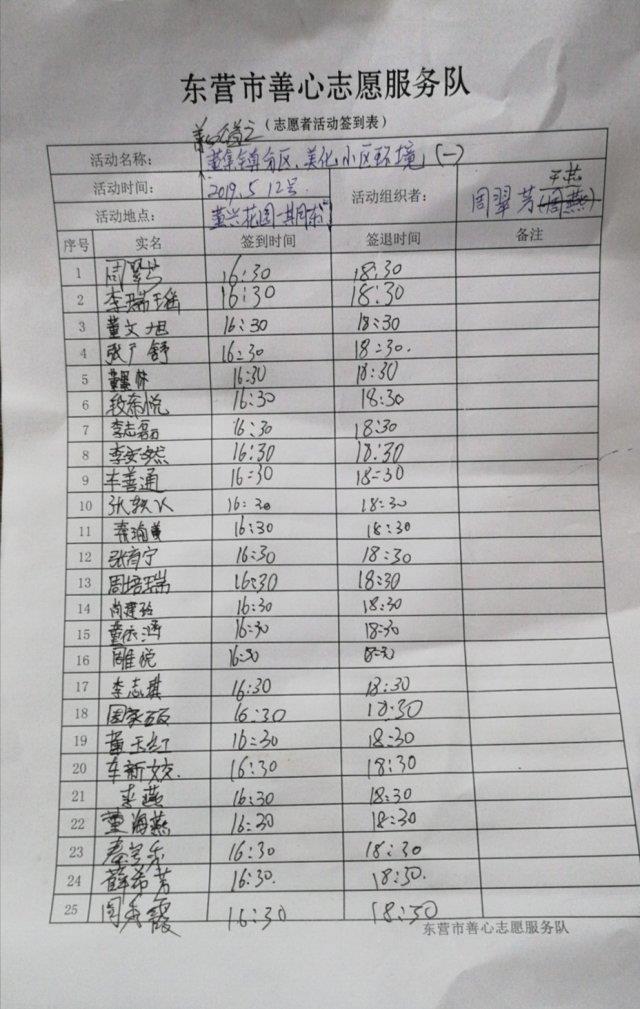 东营市善心志愿服务队
（志愿者活动签到表）
活动名称： 董集镇分区、美化小区环境（一）
活动时间： 2019.5.12号. 活动组织者： 周翠芳（周燕）
活动地点： 董兴花园一期
序号 实名 签到时间 签退时间 备注
1 周翠芳 16:30 18:30
2 李瑞瑶 16:30 18:30
3 董文旭 16:30 18:30
4 张广舒 16:30 18:30.
5 16:30 18:30
6 段希悦 16:30 18:30
7 李志磊 16:30 18:30
8 李安然 16:30 18:30
9 车善通 16:30 18:30
10 16:30 18:30
11 16:30 18:30
12 张育宁 16:30 18:30
13 周培瑞 16:30 18:30
14 尚建玲 16:30 18:30
15 董依涵 16:30 18:30
16 周雅悦 16:30 18:30
17 李志琪 16:30 18:30
18 16:30 18:30
19 董玉红 16:30 18:30
20 车新姣. 16:30 18:30
21 李燕 16:30 18:30
22 董海燕 16:30 18:30
23 16:30 18:30
24 薛希芳 16:30. 18:30.
25 周秀霞 16:30 18:30
东营市善心志愿服务队